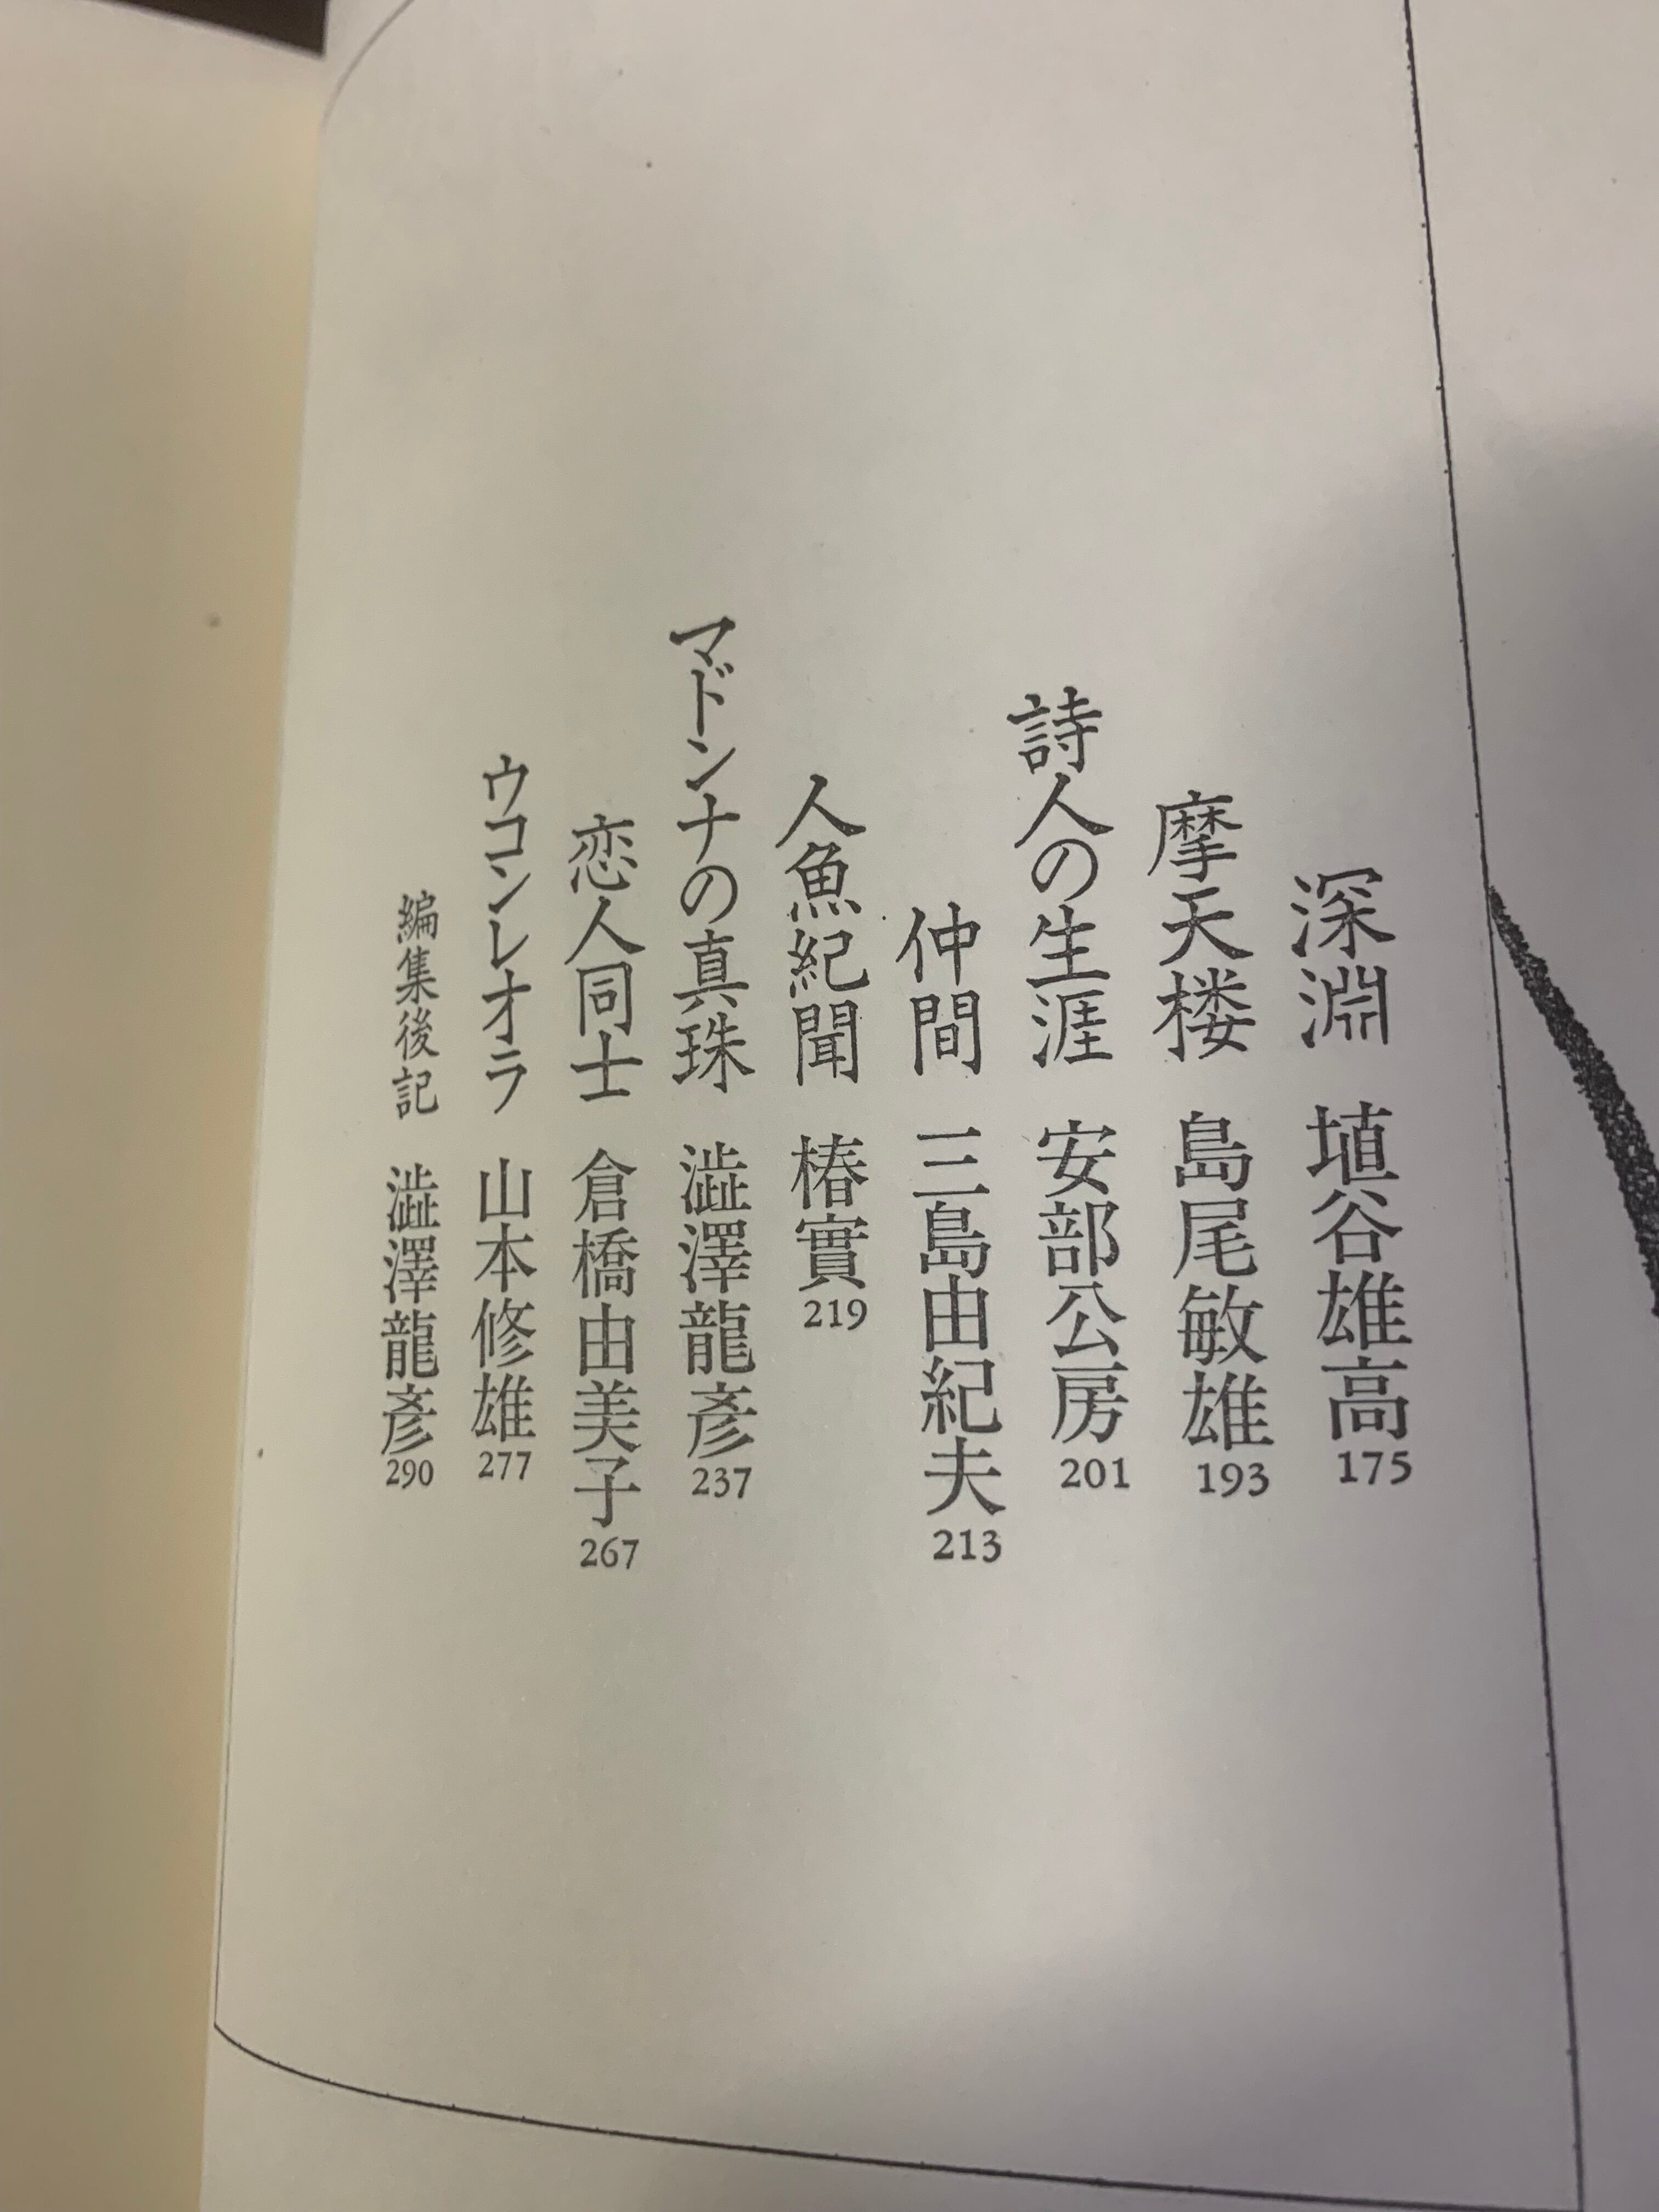 深淵 埴谷雄高 175
摩天楼 島尾敏雄 193
詩人の生涯 安部公房 201
仲間 三島由紀夫 213
人魚紀聞 椿實 219
マドンナの真珠 澁澤龍彥 237
恋人同士 倉橋由美子 267
ウコンレオラ 山本修雄 277
編集後記 澁澤龍彥 290